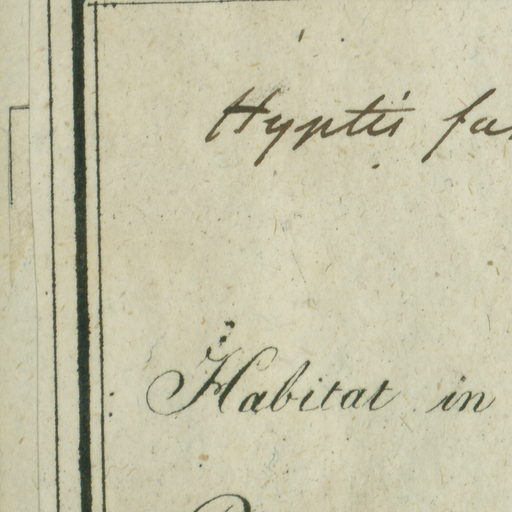 Hyptis
Habitat in